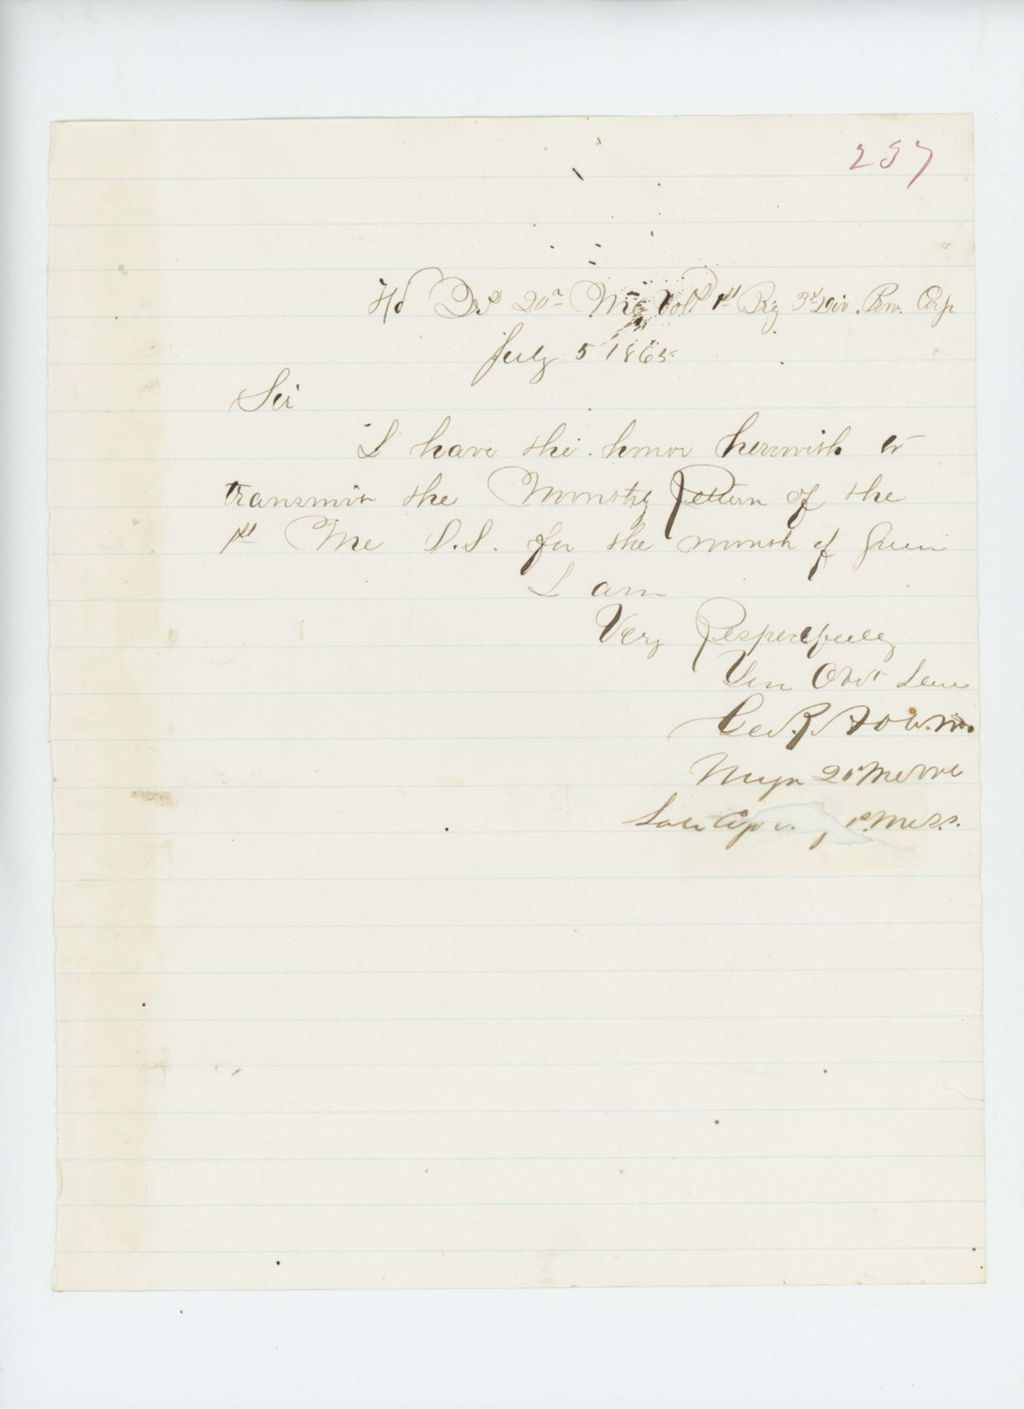 237
Hd Qrs 20th Me Vols 1st Brig 3rd Div. Prov. Corps
July 5 1865
Sir
I have the honor herewith to
transmit the Monthly Return of the
1st Me S.S. for the month of June
I am
Very Respectfully
Your Obdt Serv
Geo. R.
20th Me Vol
1st Me S.S.